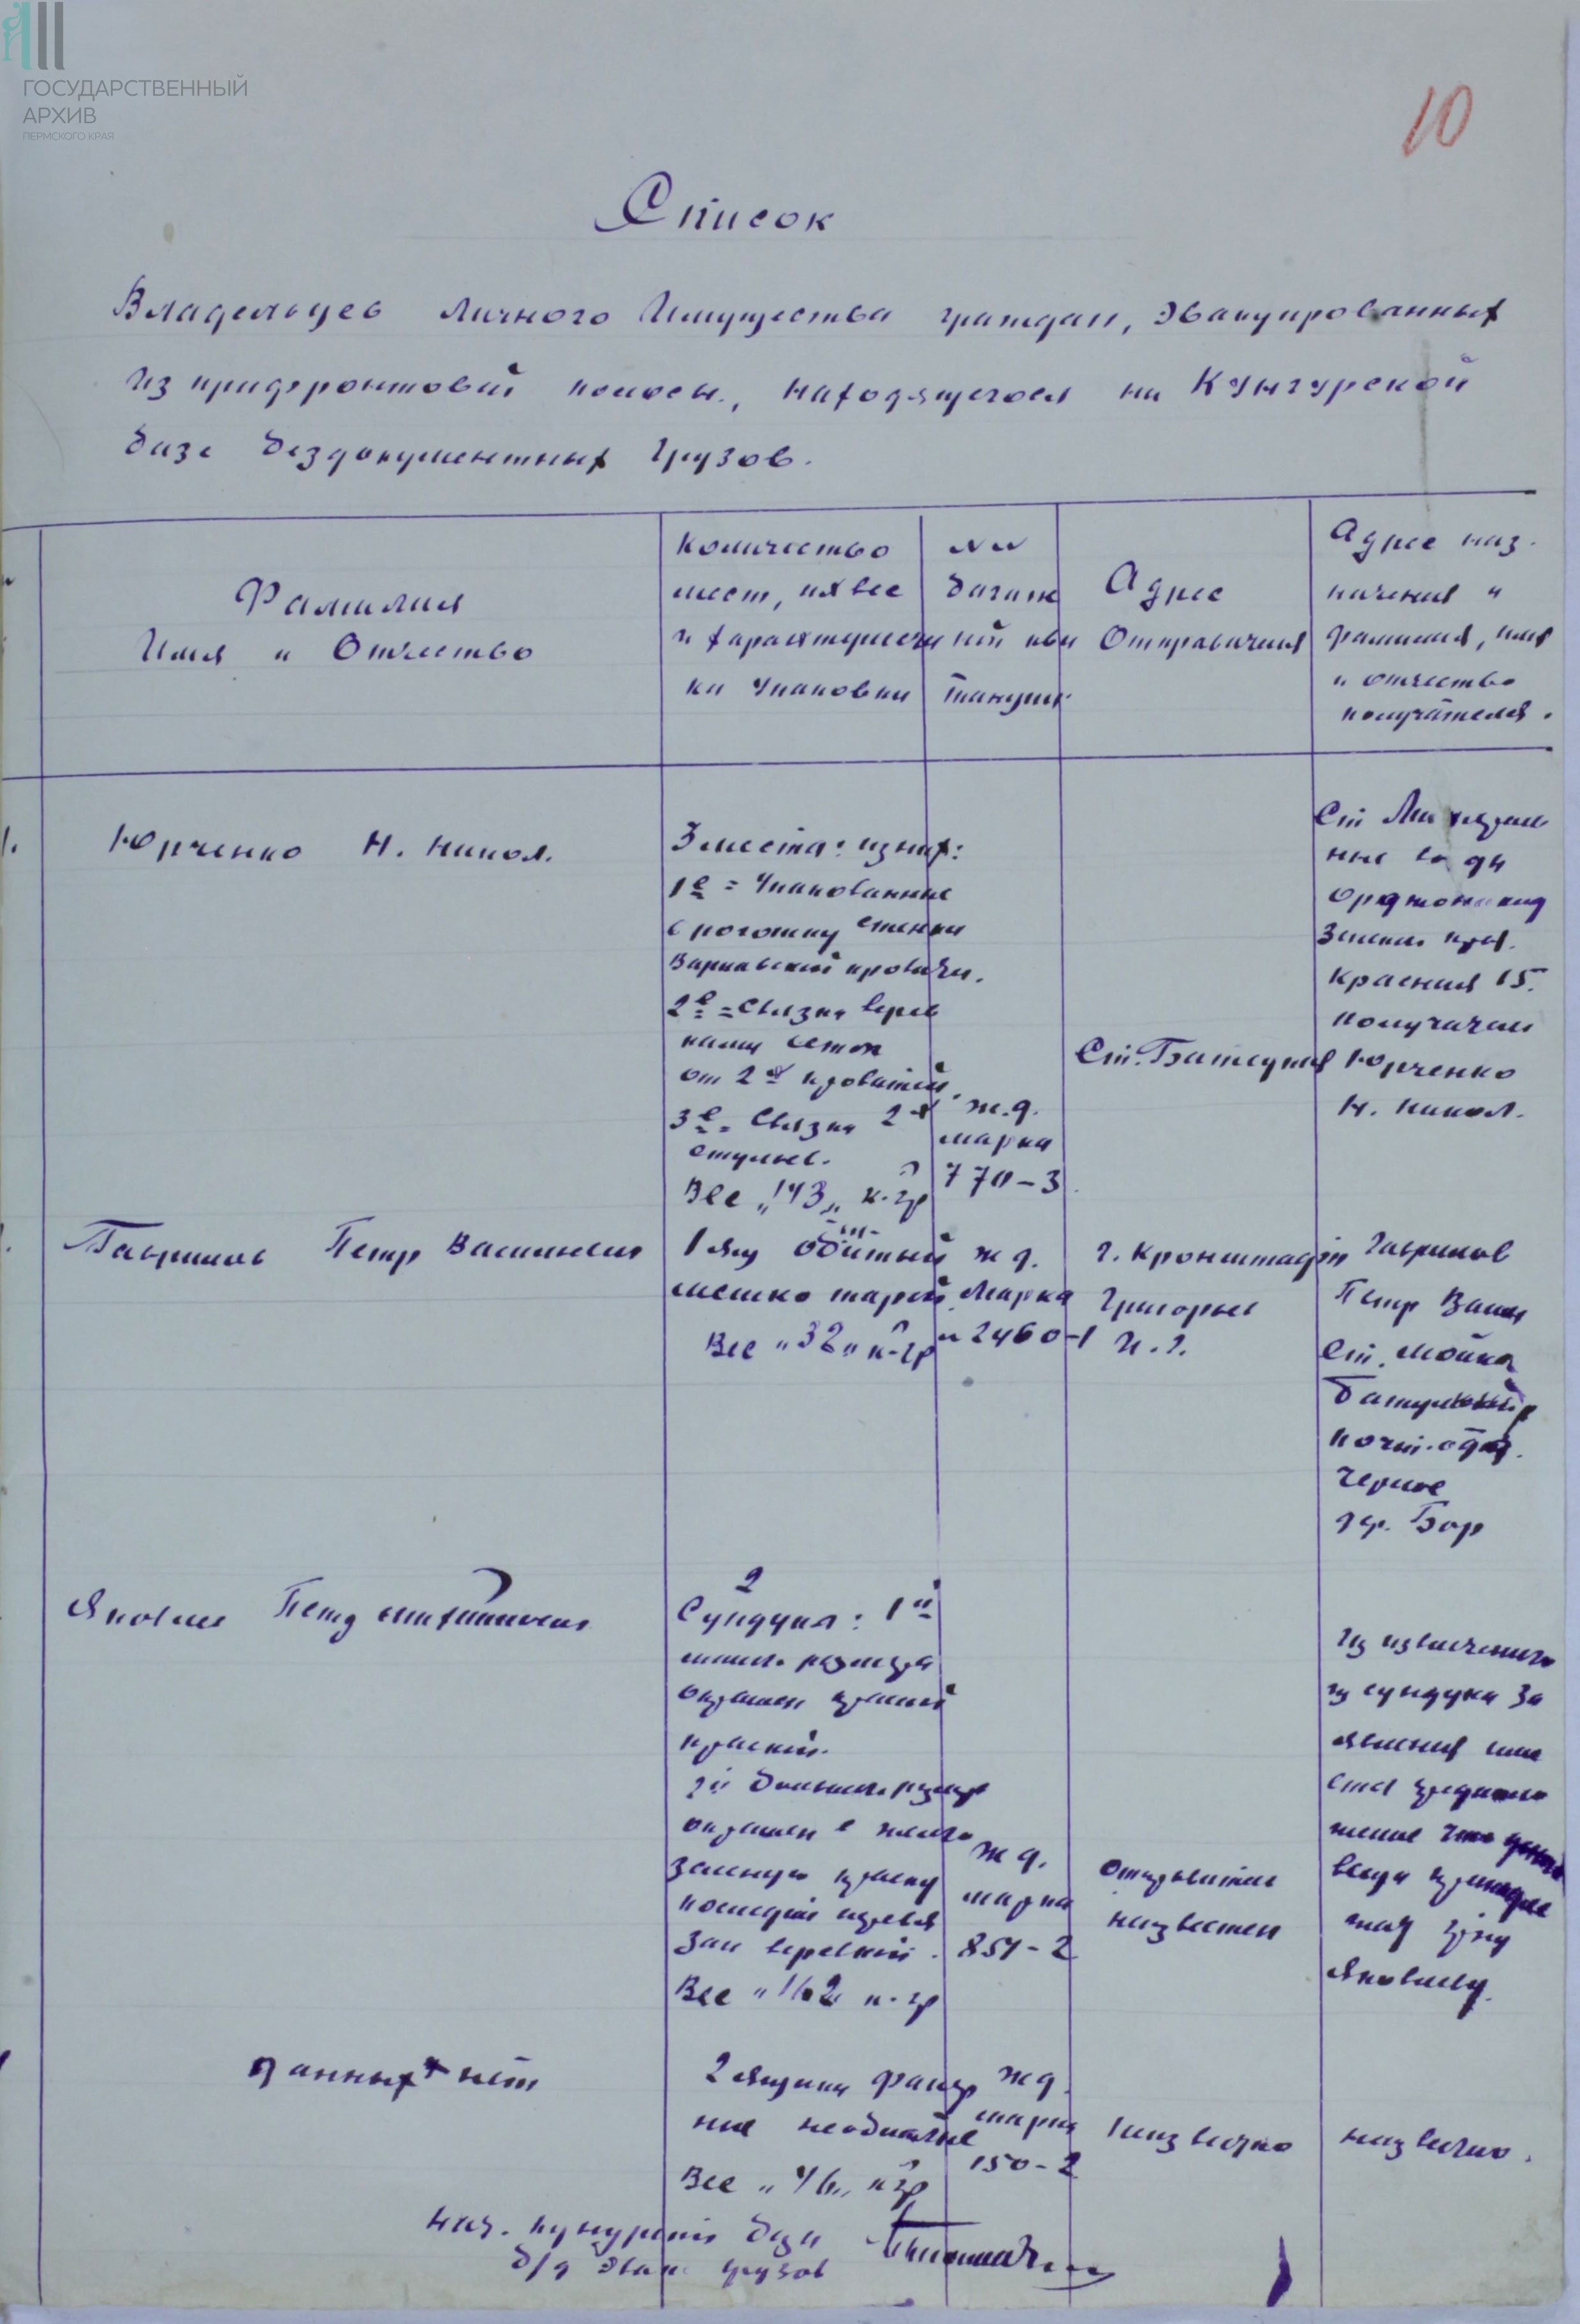 ГОСУДАРСТВЕННЫЙ
АРХИВ
ПЕРМСКОГО КРАЯ
10
Список
Владельцев личного Имущества граждан, эвакуированных
из прифронтовой полосы, находящегося на Кунгурской
базе бездокументных грузов.
Фамилия
Имя и Отчество
Количество
мест, их вес
и характеристи
ки упаковки
№№
багаж
ной кви
танции
Адрес
Отправителя
Адрес наз-
начения и
фамилия, имя
и отчество
получателя.
1.
Юрченко Н. Никол.
3 места: из них:
1е = Упакованные
в рогожку стенки
Варшавской кровати.
2е = Связка верев
ками сеток
от 2х кроватей.
3е = Связка 2х
стульев.
Вес "143" к-гр
ж.д.
марка
770-3
Ст. Батецкая
Ст Минераль
ные воды
Орджоникид
зенский край.
Красная 15.
получатель
Юрченко
Н. Никол.
Гаврилов Петр Васильевич
1 ящ обитый
мешко тарой
Вес "32" к-гр
ж д.
Марка
2460-1
г. Кронштадт
Григорьев
И. Г.
Гаврилов
Петр Васил
Ст. Мойка
почт. отд.
Черное
гр. Бор
Яковлев Петр
2
Сундука: 1й
малого размера
окрашен
краской.
2й большого размер
окрашен в желто
зеленую краску
последний перевя
зан веревкой.
Вес "162" к-гр
ж д.
марка
851-2
отправитель
неизвестен
Из извлеченного
из сундука за
явления име
ется предполо
жение что данные
вещи принадле
жат гр-ну
Яковлеву.
Данных нет
2 ящика фанер
ные необшитые
Вес "46" кгр
ж д.
марка
150-2
неизвестно
неизвестно.
Нач. Кунгурской базы
б/д эвак. грузов